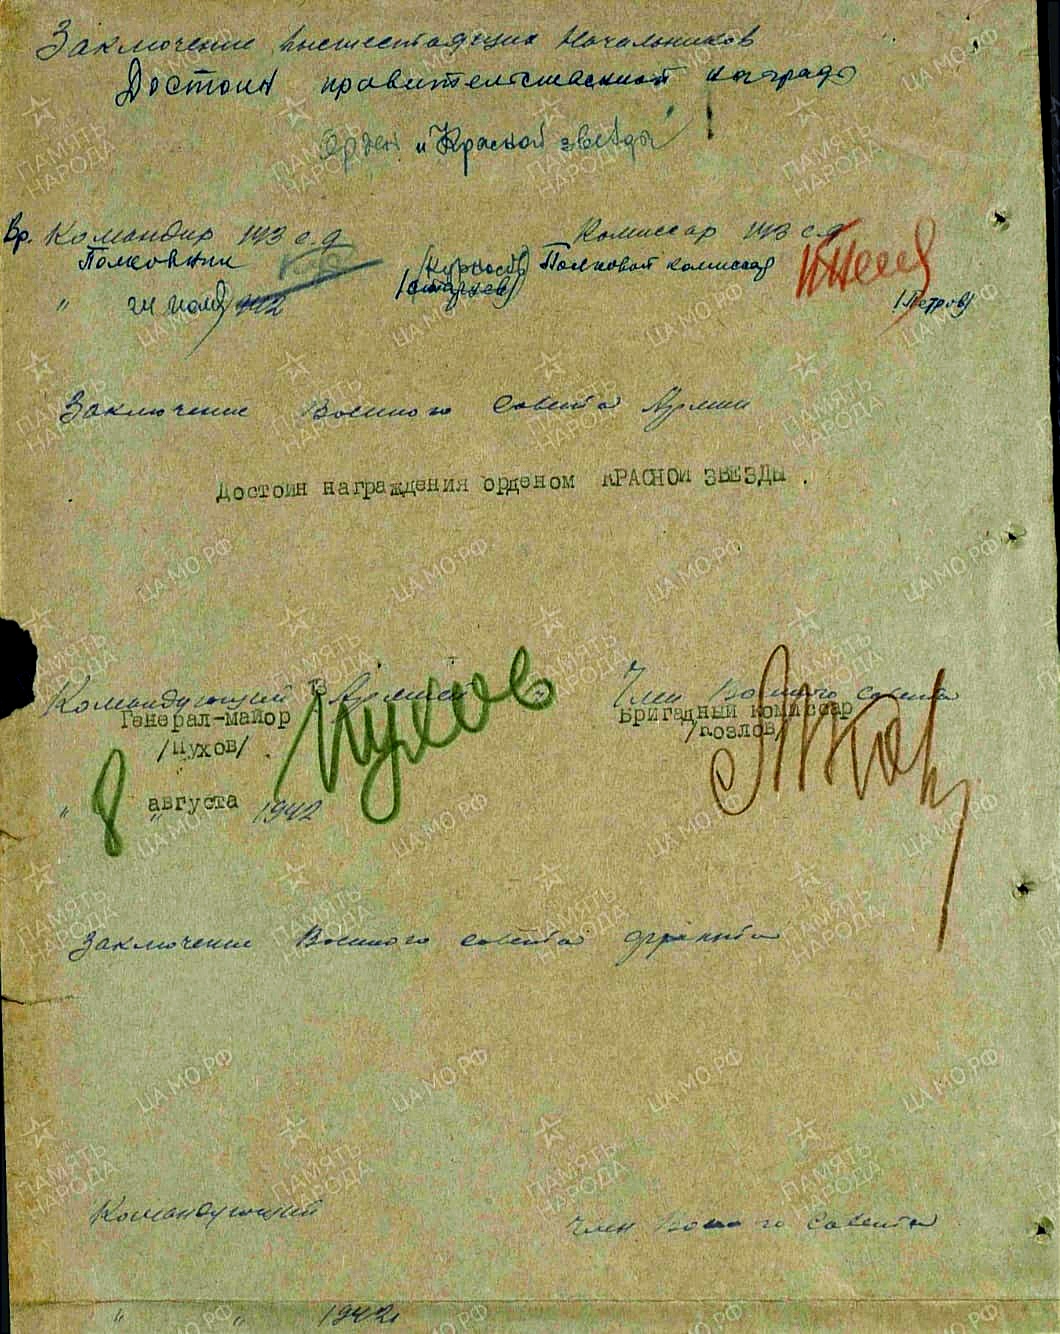 Заключение вышестоящих Начальников
Достоин правительственной награды
Орден "Красной звезды"
Вр. Командир 143 с.д. Комиссар 143 с.д.
Полковник /Курносов/ Полковой комиссар
/Старцев/
" 24 июля 1942 /Петров/
Заключение Военного Совета Армии
Достоин награждения орденом КРАСНОЙ ЗВЕЗДЫ .
Командующий 13 Армией Член Военного совета
Генерал-майор Бригадный комиссар
/Пухов/ Пухов /Козлов/
" 8 " августа 1942
Заключение Военного совета фронта
Командующий Член Военного Совета
" " 1942